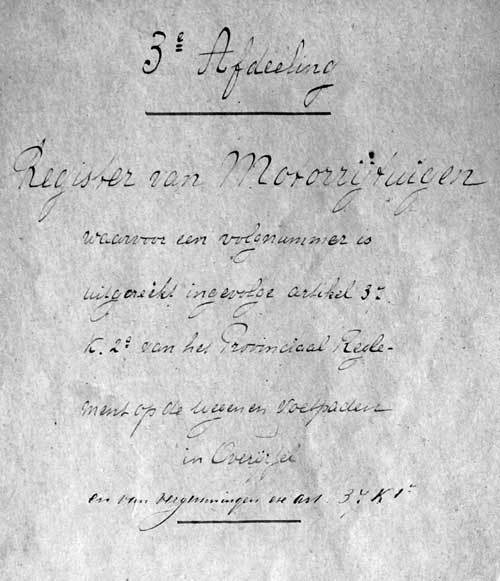 3e Afdeeling
Register van Motorrijtuigen
waarvoor een volgnummer is
uitgereikt ingevolge artikel 37
K. 2e van het Provinciaal Regle-
ment op de wegen en voetpaden
in Overijsel
en van vergunningen ex art. 37 K 1e